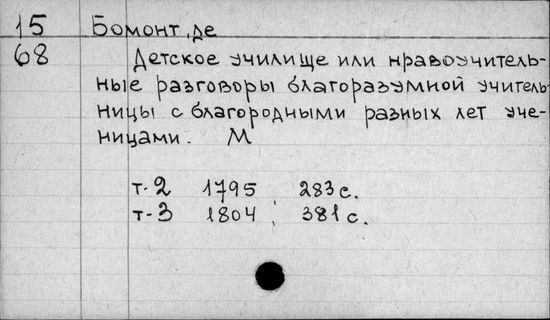 15 Бомонт, де
68 Детское училище или нравоучитель-
ные разговоры благоразумной учитель-
ницы с благородными разных лет уче-
ницами. М
т-2 1795 283 с.
т-3 1804 381 с.